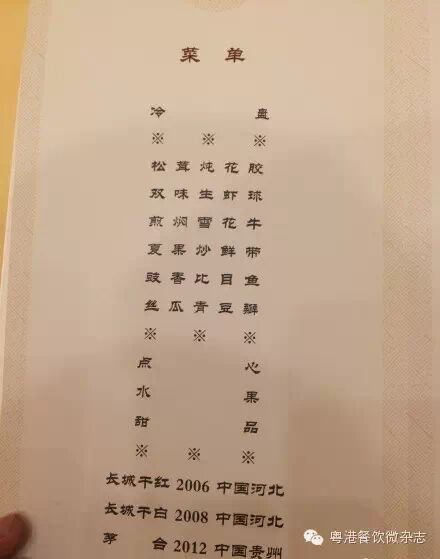 菜单
冷盘
※ ※ ※
松茸炖花胶
双味生虾球
煎焖雪花牛
夏果炒鲜带
豉香比目鱼
丝瓜青豆瓣
※ ※ ※
点心
水果
甜品
※ ※ ※
长城干红 2006 中国河北
长城干白 2008 中国河北
茅台 2012 中国贵州
粤港餐饮微杂志